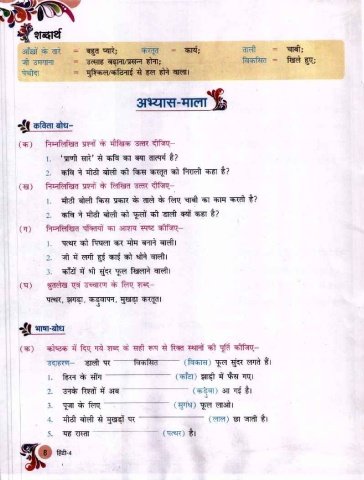 शब्दार्थ
आँखों के तारे = बहुत प्यारे; करतूत = कार्य; ताली = चाबी;
जी उमगाना = उत्साह बढ़ाना/प्रसन्न होना; विकसित = खिले हुए;
पेचीदा = मुश्किल/कठिनाई से हल होने वाला।
अभ्यास-माला
कविता बोध–
(क) निम्नलिखित प्रश्नों के मौखिक उत्तर दीजिए–
1. 'प्राणी सारे' से कवि का क्या तात्पर्य है?
2. कवि ने मीठी बोली की किस करतूत को निराली कहा है?
(ख) निम्नलिखित प्रश्नों के लिखित उत्तर दीजिए–
1. मीठी बोली किस प्रकार के ताले के लिए चाबी का काम करती है?
2. कवि ने मीठी बोली को फूलों की डाली क्यों कहा है?
(ग) निम्नलिखित पंक्तियों का आशय स्पष्ट कीजिए–
1. पत्थर को पिघला कर मोम बनाने वाली।
2. जी में लगी हुई काई को धोने वाली।
3. काँटों में भी सुंदर फूल खिलाने वाली।
(घ) श्रुतलेख एवं उच्चारण के लिए शब्द–
पत्थर, झगड़ा, कड़वापन, मुखड़ा करतूत।
भाषा-बोध
(क) कोष्ठक में दिए गये शब्द के सही रूप से रिक्त स्थानों की पूर्ति कीजिए–
उदाहरण– डाली पर विकसित (विकास) फूल सुंदर लगते हैं।
1. हिरन के सींग (काँटा) झाड़ी में फँस गए।
2. उनके रिश्तों में अब (कड़ुवा) आ गई है।
3. पूजा के लिए (सुगंध) फूल लाओ।
4. मीठी बोली से मुखड़ों पर (लाल) छा जाती है।
5. यह रास्ता (पत्थर) है।
8 हिंदी-4